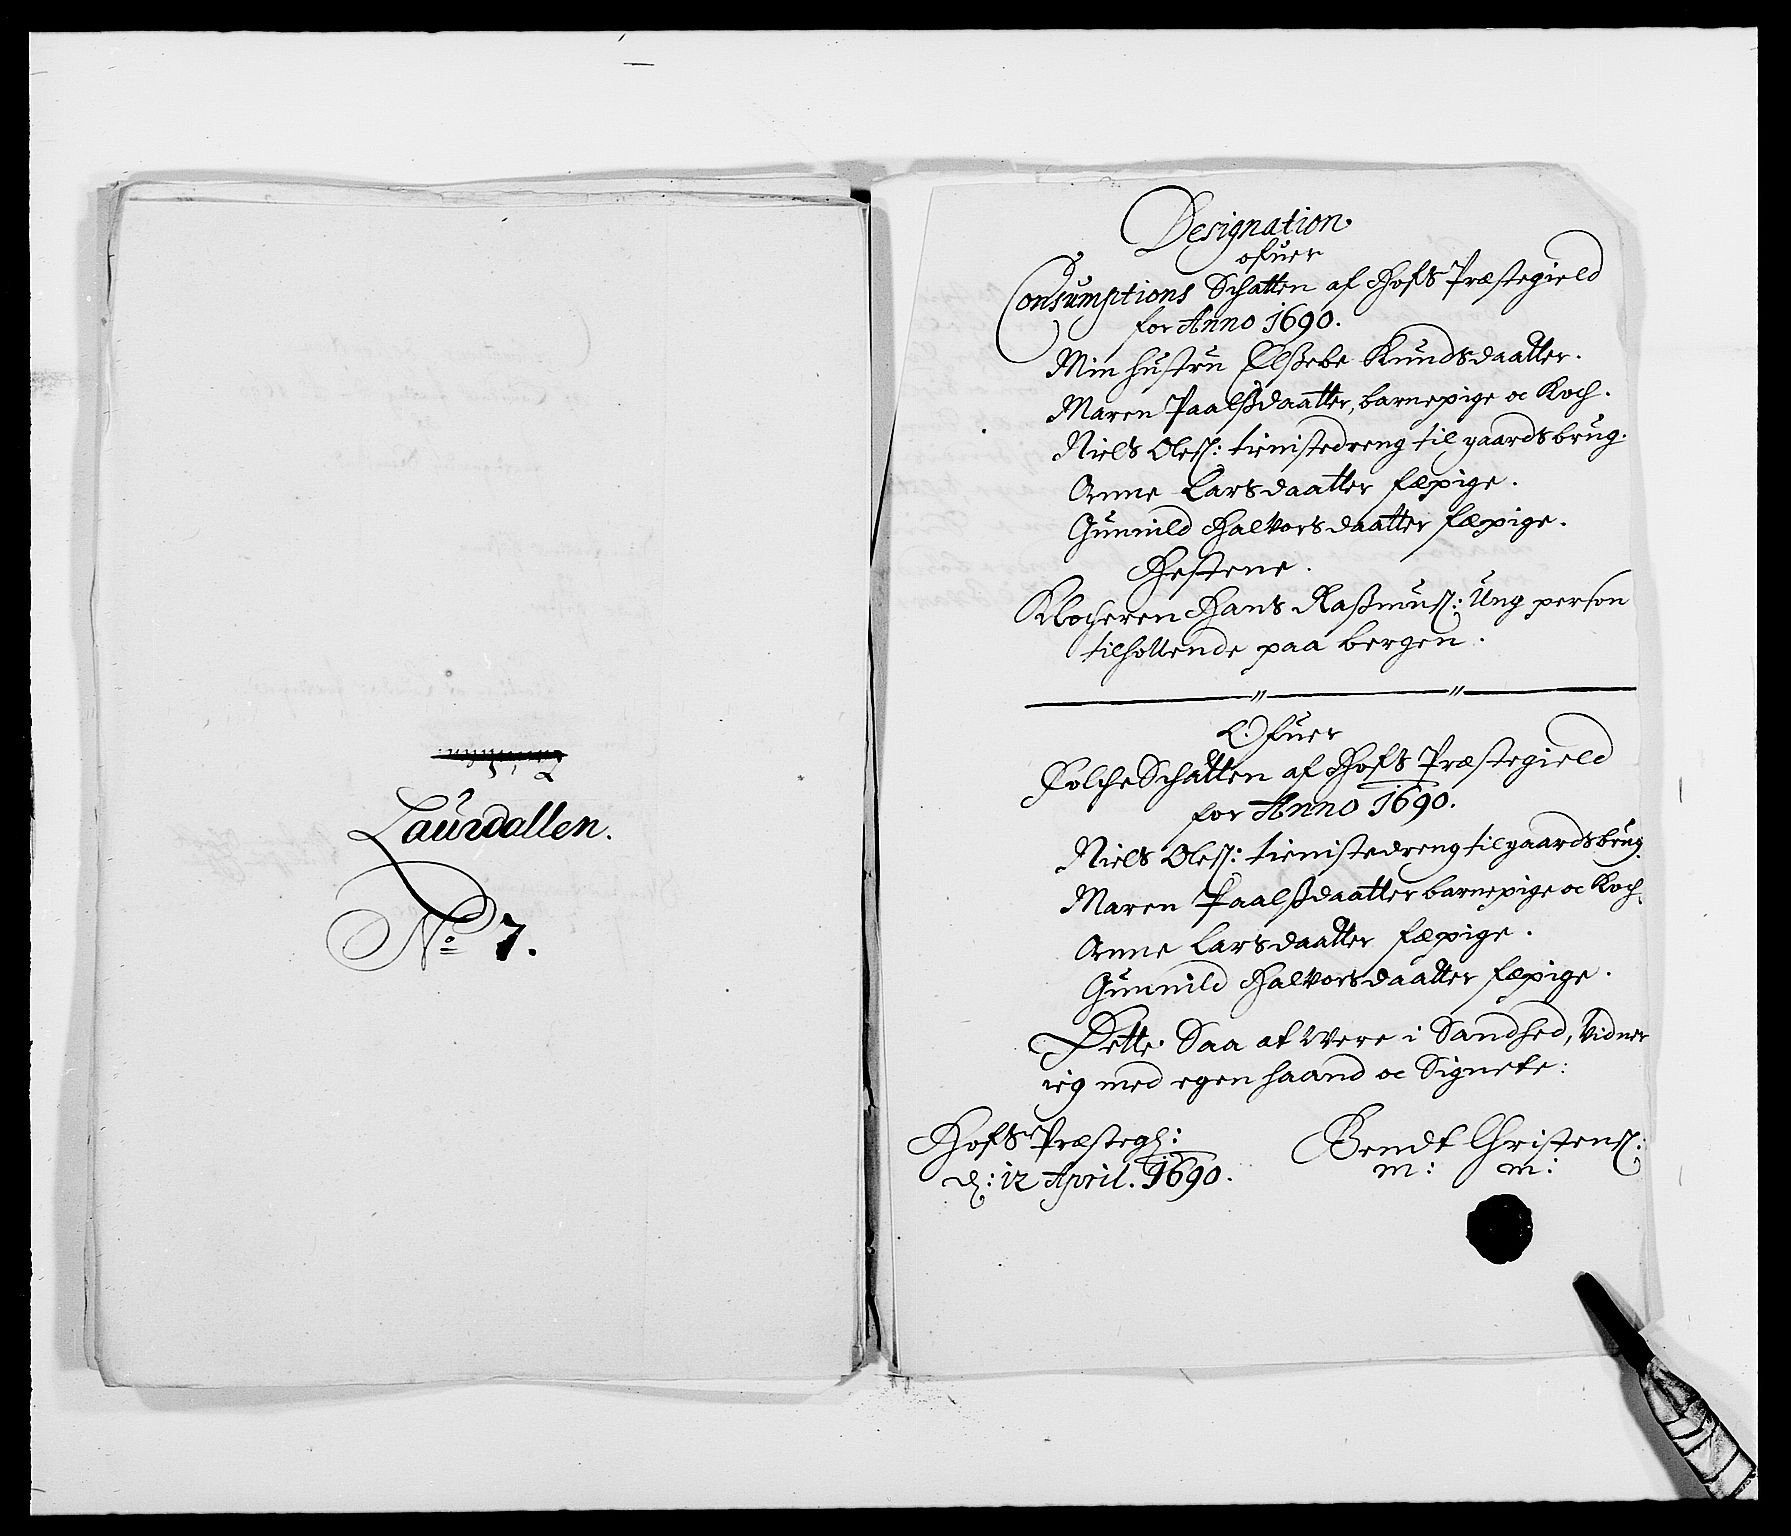 Laurdallen.
No 7.
Designation
ofuer
Consumptions Schatten af Hofs Præstegield
for Anno 1690.
Min hustru Elßebe Knudsdaatter.
Maren Paalßdaatter, barnepige oc Koch.
Niels Oless: tienistedreng til gaardsbrug.
Anne Larsdaatter fæpige.
Gunnild Halvorsdaatter fæpige.
Hestene.
Klocheren Hans Raßmuss: Ung person
tilhollende paa bergen.
Ofuer
Folche Schatten af Hofs Præstegield
for Anno 1690.
Niels Oless: tienistedreng til gaardsbrug
Maren Paalßdaatter barnepige oc Koch.
Anne Larsdaatter fæpige.
Gunnild Halvorsdaatter fæpige.
Dette Saa at Were i Sandhed, Vidner
ieg med egen haand oc Signete:
Hofs Præstegd:
d: 12 April. 1690.
Bendt Christenss:
m: m: